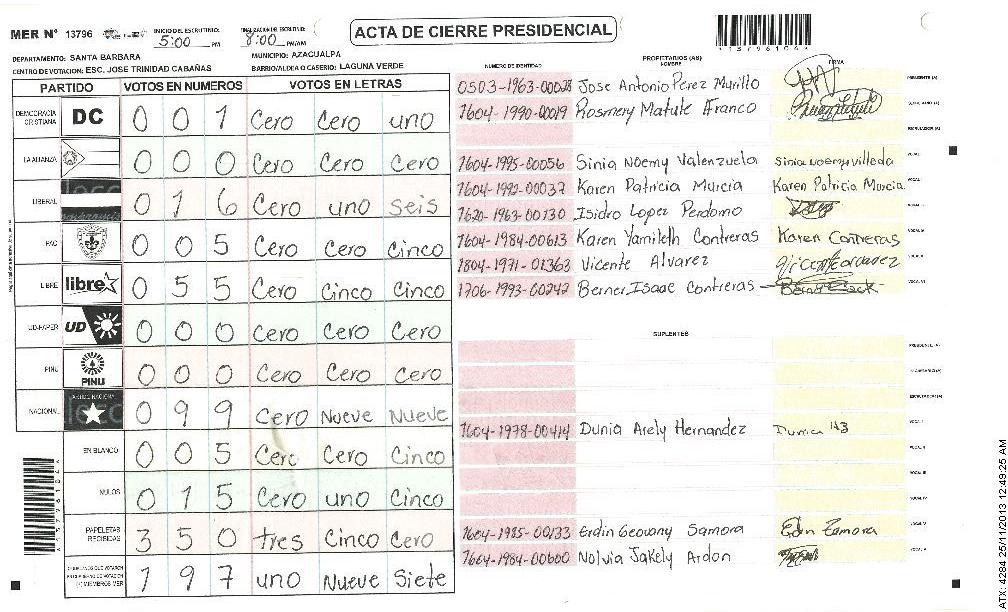 MER N° 13796
INICIO DEL ESCRUTINIO:
5:00 PM
FINALIZACION DEL ESCRUTINIO:
8:00 PM/AM
ACTA DE CIERRE PRESIDENCIAL
DEPARTAMENTO: SANTA BARBARA
MUNICIPIO: AZACUALPA
CENTRO DE VOTACION: ESC. JOSE TRINIDAD CABAÑAS
BARRIO/ALDEA O CASERIO: LAGUNA VERDE
PARTIDO VOTOS EN NUMEROS VOTOS EN LETRAS
DEMOCRACIA CRISTIANA DC 0 0 1 Cero Cero uno
LA ALIANZA 0 0 0 Cero Cero Cero
LIBERAL 0 1 6 Cero uno Seis
PAC 0 0 5 Cero Cero Cinco
LIBRE libre 0 5 5 Cero Cinco Cinco
UD-FAPER UD 0 0 0 Cero Cero Cero
PINU PINU 0 0 0 Cero Cero Cero
NACIONAL 0 9 9 Cero Nueve Nueve
EN BLANCO 0 0 5 Cero Cero Cinco
NULOS 0 1 5 Cero uno Cinco
PAPELETAS RECIBIDAS 3 5 0 tres Cinco Cero
1 9 7 uno Nueve Siete
PROPIETARIOS (AS)
NUMERO DE IDENTIDAD NOMBRE FIRMA
0503-1963-00028 Jose Antonio Perez Murillo PRESIDENTE (A)
1604-1990-00019 Rosmery Matute Franco SECRETARIO (A)
ESCRUTADOR (A)
1604-1995-00056 Sinia Noemy Valenzuela VOCAL I
1604-1992-00037 Karen Patricia Murcia Karen Patricia Murcia VOCAL II
1620-1963-00130 Isidro Lopez Perdomo VOCAL III
1604-1984-00613 Karen Yamileth Contreras Karen Contreras VOCAL IV
1804-1971-01363 Vicente Alvarez VOCAL V
1706-1993-00242 Berner Isaac Contreras VOCAL VI
SUPLENTES
PRESIDENTE (A)
SECRETARIO (A)
ESCRUTADOR (A)
1604-1978-00414 Dunia Arely Hernandez VOCAL I
VOCAL II
VOCAL III
VOCAL IV
1604-1985-00133 Erdin Geovany Samora Edin Zamora VOCAL V
1604-1984-00600 Nolvia Jakely Ardon VOCAL VI
ATX: 4284 25/11/2013 12:49:25 AM